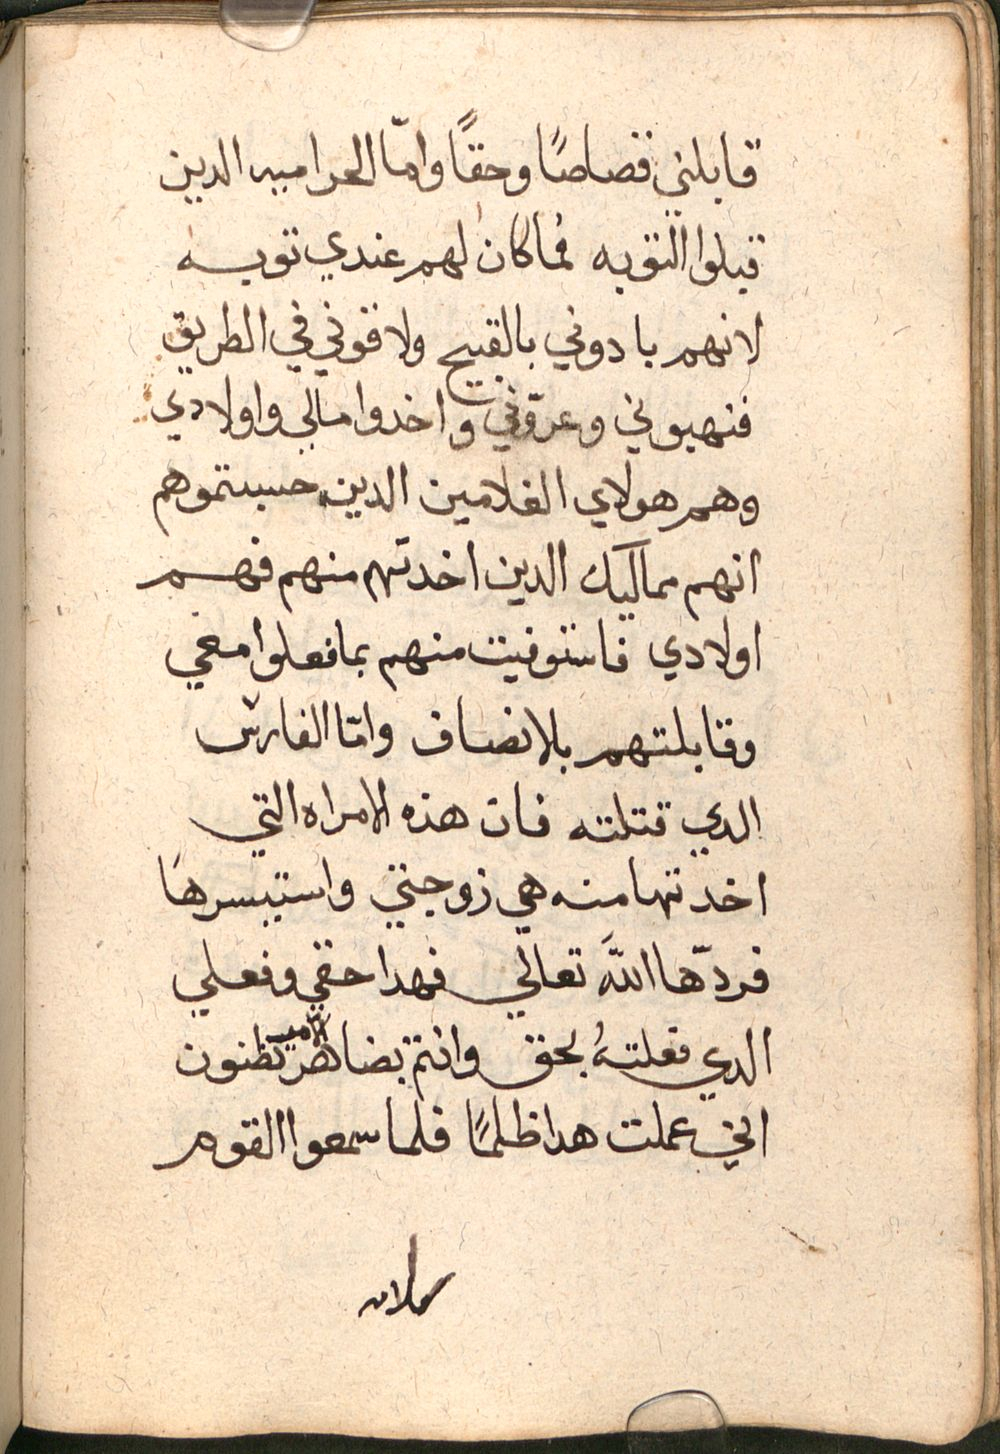 قابلني قصاصًا وحقًا وامّا الحراميه الدين
قبلوا التوبه فما كان لهم عندي توبه
لانهم بادوني بالقبيح ولاقوني في الطريق
فنهبوني وعرّوني واخدوا مالي واولادي
وهم هولاي الغلامين الدين حسبتموهم
انهم مماليك الدين اخدتهم منهم فهم
اولادي فاستوفيت منهم بما فعلوا معي
وقابلتهم بالانصاف وامّا الفارس
الدي قتلته فان هذه الامراه التي
اخدتها منه هي زوجتي واستيسرها
فردّها اللّه تعالي فهدا حقي وفعلي
الدي فعلتهُ بحق وانتم بضاهر الامر تظنون
اني عملت هدا ظلمًا فلما سمعوا القوم